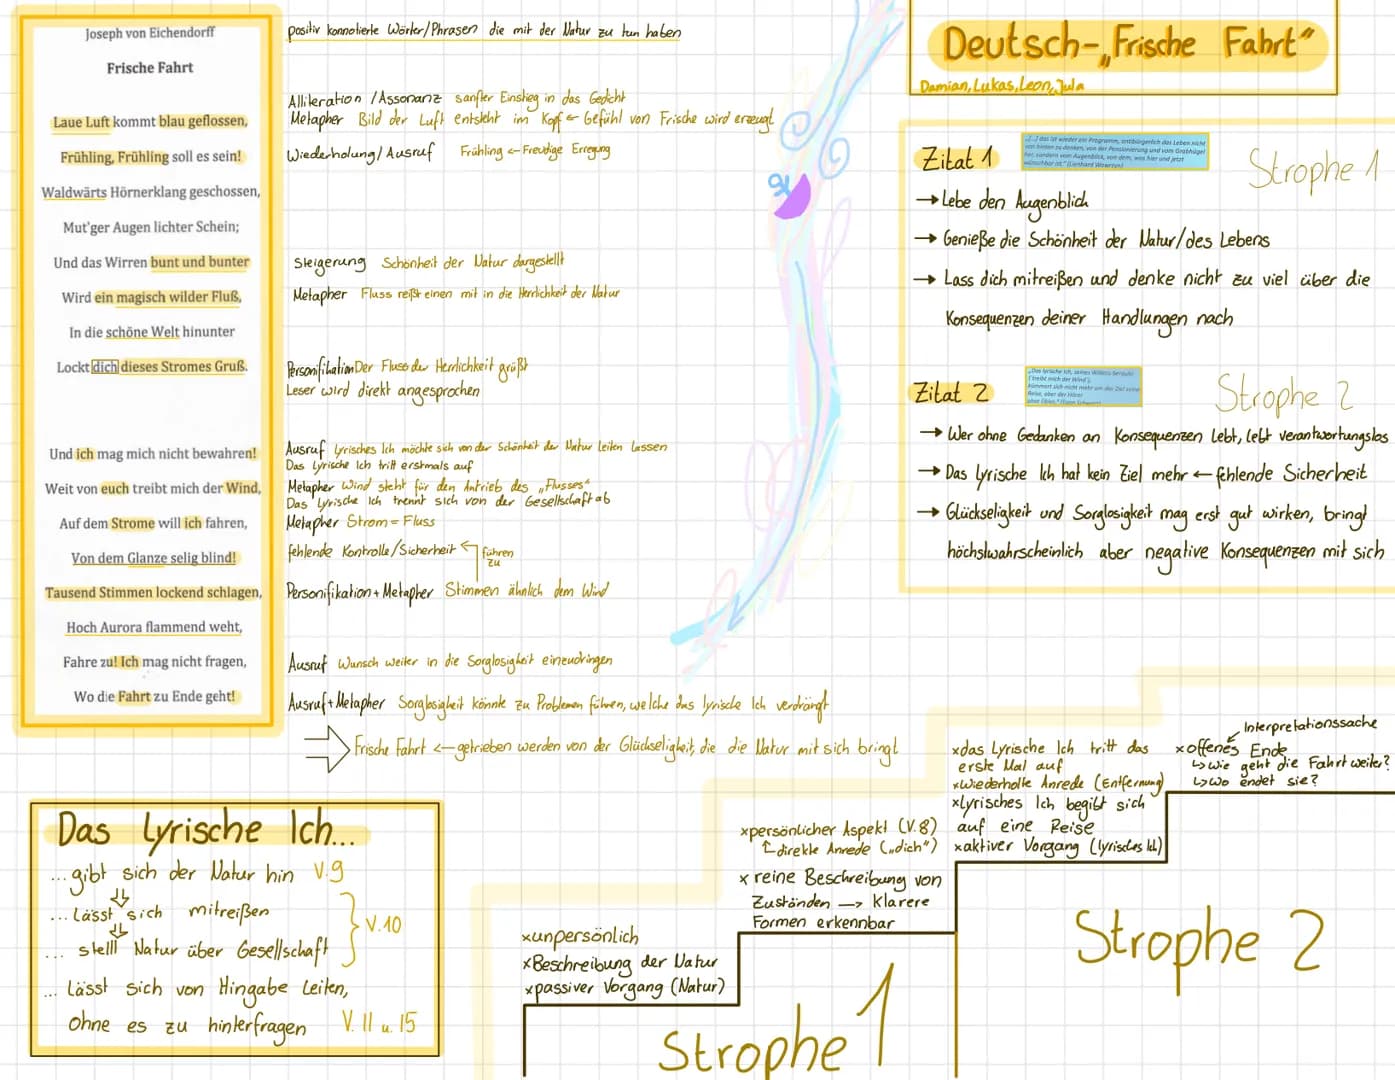 Joseph von Eichendorff
Frische Fahrt
Laue Luft kommt blau geflossen,
Frühling, Frühling soll es sein!
Waldwärts Hörnerklang geschossen,
Mut'ger Augen lichter Schein;
Und das Wirren bunt und bunter
Wird ein magisch wilder Fluß,
In die schöne Welt hinunter
Lockt dich dieses Stromes Gruß.
Und ich mag mich nicht bewahren!
Weit von euch treibt mich der Wind,
Auf dem Strome will ich fahren,
Von dem Glanze selig blind!
Tausend Stimmen lockend schlagen,
Hoch Aurora flammend weht,
Fahre zu! Ich mag nicht fragen,
Wo die Fahrt zu Ende geht!
positiv konnotierte Wörter/Phrasen die mit der Natur zu tun haben
Alliteration / Assonanz sanfter Einstieg in das Gedicht
Metapher Bild der Luft entsteht im Kopf ← Gefühl von Frische wird erzeugt
Wiederholung/Ausruf Frühling ← Freudige Erregung
Steigerung Schönheit der Natur dargestellt
Metapher Fluss reißt einen mit in die Herrlichkeit der Natur
Personifikation Der Fluss der Herrlichkeit grüßt
Leser wird direkt angesprochen
Ausruf Lyrisches Ich möchte sich von der Schönheit der Natur leiten lassen
Das Lyrische Ich tritt erstmals auf
Metapher Wind steht für den Antrieb des „Flusses“
Das Lyrische Ich trennt sich von der Gesellschaft ab
Metapher Strom = Fluss
fehlende Kontrolle/Sicherheit ← führen
zu
Personifikation + Metapher Stimmen ähnlich dem Wind
Ausruf Wunsch weiter in die Sorglosigkeit einzudringen
Ausruf + Metapher Sorglosigkeit könnte zu Problemen führen, welche das lyrische Ich verdrängt
⇒ Frische Fahrt ← getrieben werden von der Glückseligkeit, die die Natur mit sich bringt
Deutsch-„Frische Fahrt“
Damian, Lukas, Leon, Jula
Zitat 1
„[...] das ist wieder ein Programm, entbürgerlich das Leben nicht
von hinten zu denken, von der Pensionierung und vom Grabhügel
her, sondern vom Augenblick, von dem, was hier und jetzt
wünschbar ist.“ (Lienhard Wawrzyn)
Strophe 1
→ Lebe den Augenblick
→ Genieße die Schönheit der Natur/des Lebens
→ Lass dich mitreißen und denke nicht zu viel über die
Konsequenzen deiner Handlungen nach
Zitat 2
„Das lyrische Ich, seines Willens beraubt
('treibt mich der Wind'),
kümmert sich nicht mehr um das Ziel seiner
Reise, aber der Hörer
Strophe 2
→ Wer ohne Gedanken an Konsequenzen lebt, lebt verantwortungslos
→ Das lyrische Ich hat kein Ziel mehr ← fehlende Sicherheit
→ Glückseligkeit und Sorglosigkeit mag erst gut wirken, bringt
höchstwahrscheinlich aber negative Konsequenzen mit sich
Das Lyrische Ich...
...gibt sich der Natur hin V.9
... Lässt sich mitreißen
... stellt Natur über Gesellschaft
V.10
... Lässt sich von Hingabe Leiten,
ohne es zu hinterfragen V. 11 u. 15
xunpersönlich
xBeschreibung der Natur
xpassiver Vorgang (Natur)
xpersönlicher Aspekt (V.8)
direkte Anrede („dich“)
x reine Beschreibung von
Zuständen → Klarere
Formen erkennbar
Strophe 1
xdas Lyrische Ich tritt das
erste Mal auf
xwiederholte Anrede (Entfernung)
xLyrisches Ich begibt sich
auf eine Reise
xaktiver Vorgang (lyrisches Ich)
Interpretationssache
xoffenes Ende
↳wie geht die Fahrt weiter?
↳wo endet sie?
Strophe 2